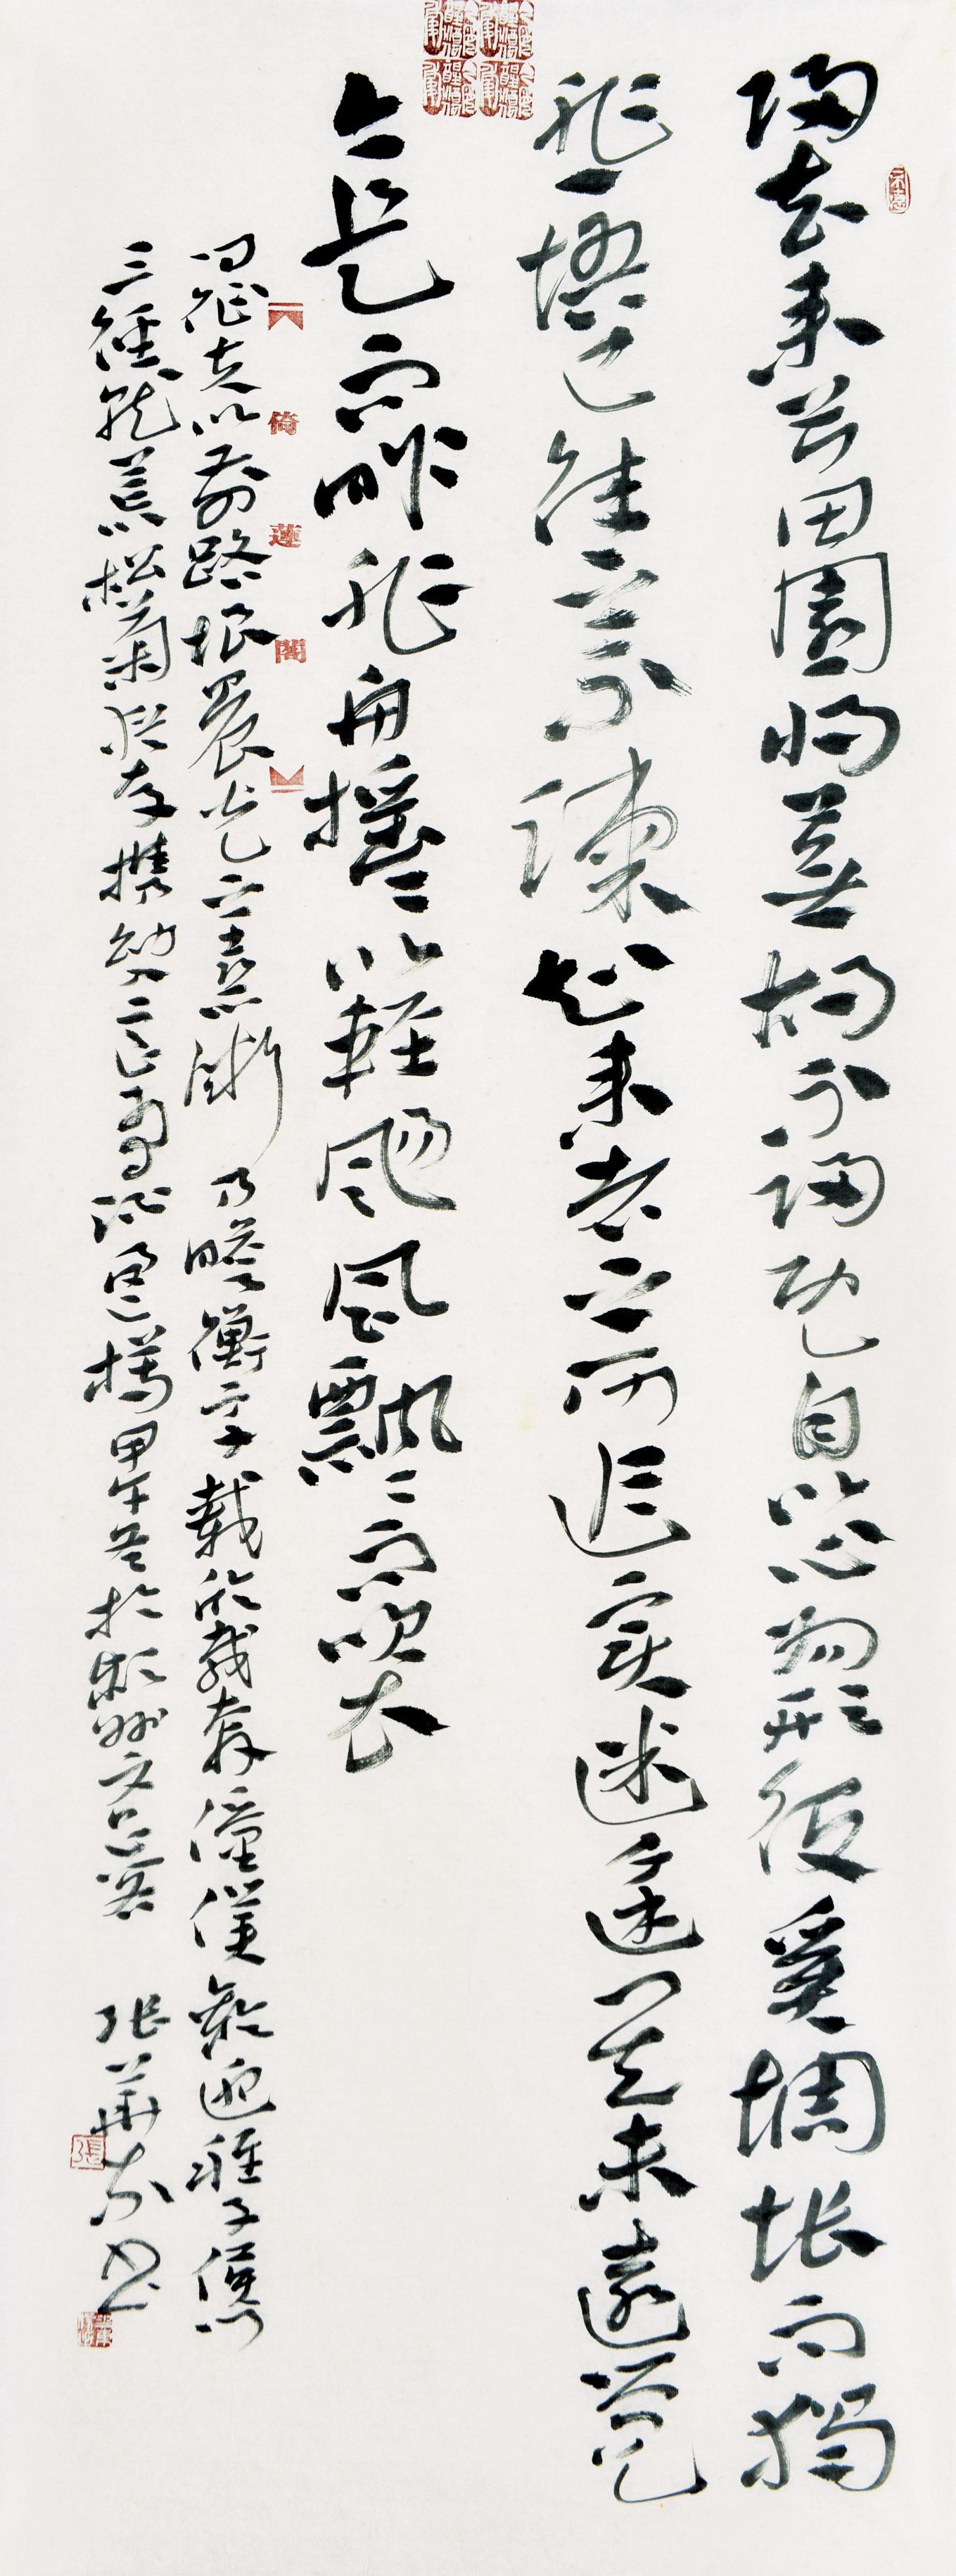 歸去来兮田園將蕪胡不歸既自以心為形役奚惆悵而獨
悲悟已往之不諫知来者之可追實迷途其未遠覺
今是而昨非舟摇〻以輕颺風飄〻而吹衣
问征夫以前路恨晨光之熹微 乃瞻衡宇載欣載奔僮僕歡迎稚子候門
三徑就荒松菊猶存攜幼入室有酒盈樽甲午冬於 張華 书
倚蓮閣